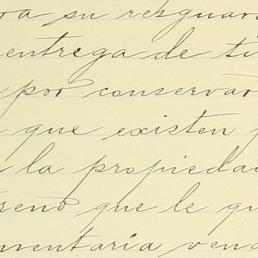 ra su resguar
entrega de ti
por conservar
que existen
la propieda
reno que le qu
mentaria ven